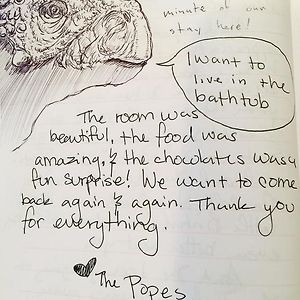 minute of our
stay here!
I want to
live in the
bathtub
The room was
beautiful, the food was
amazing, & the chocolates was a
fun surprise! We want to come
back again & again. Thank you
for everything.
The Popes